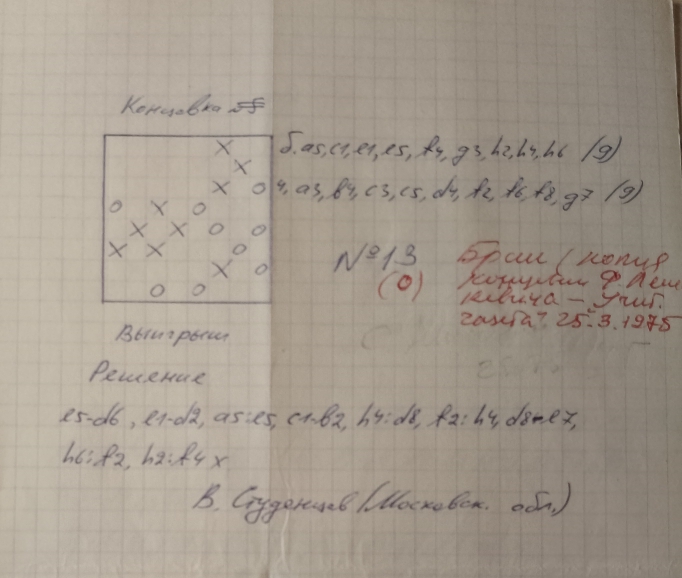 Концовка №
б. a5, c1, e1, e5, f4, g3, h2, h4, h6 (9)
ч. a3, b4, c3, c5, d4, f2, f6, f8, g7 (9)
№13
(0)
Брак / копия
концовки Ф. 
кевича – Учит.
газета" 25.3.1975
Выигрыш
Решение
e5-d6, e1-d2, a5:e5, c1-b2, h4:d8, f2:h4, d8-e7,
h6:f2, h2:f4 x
В. Студенцев (Московск. обл.)